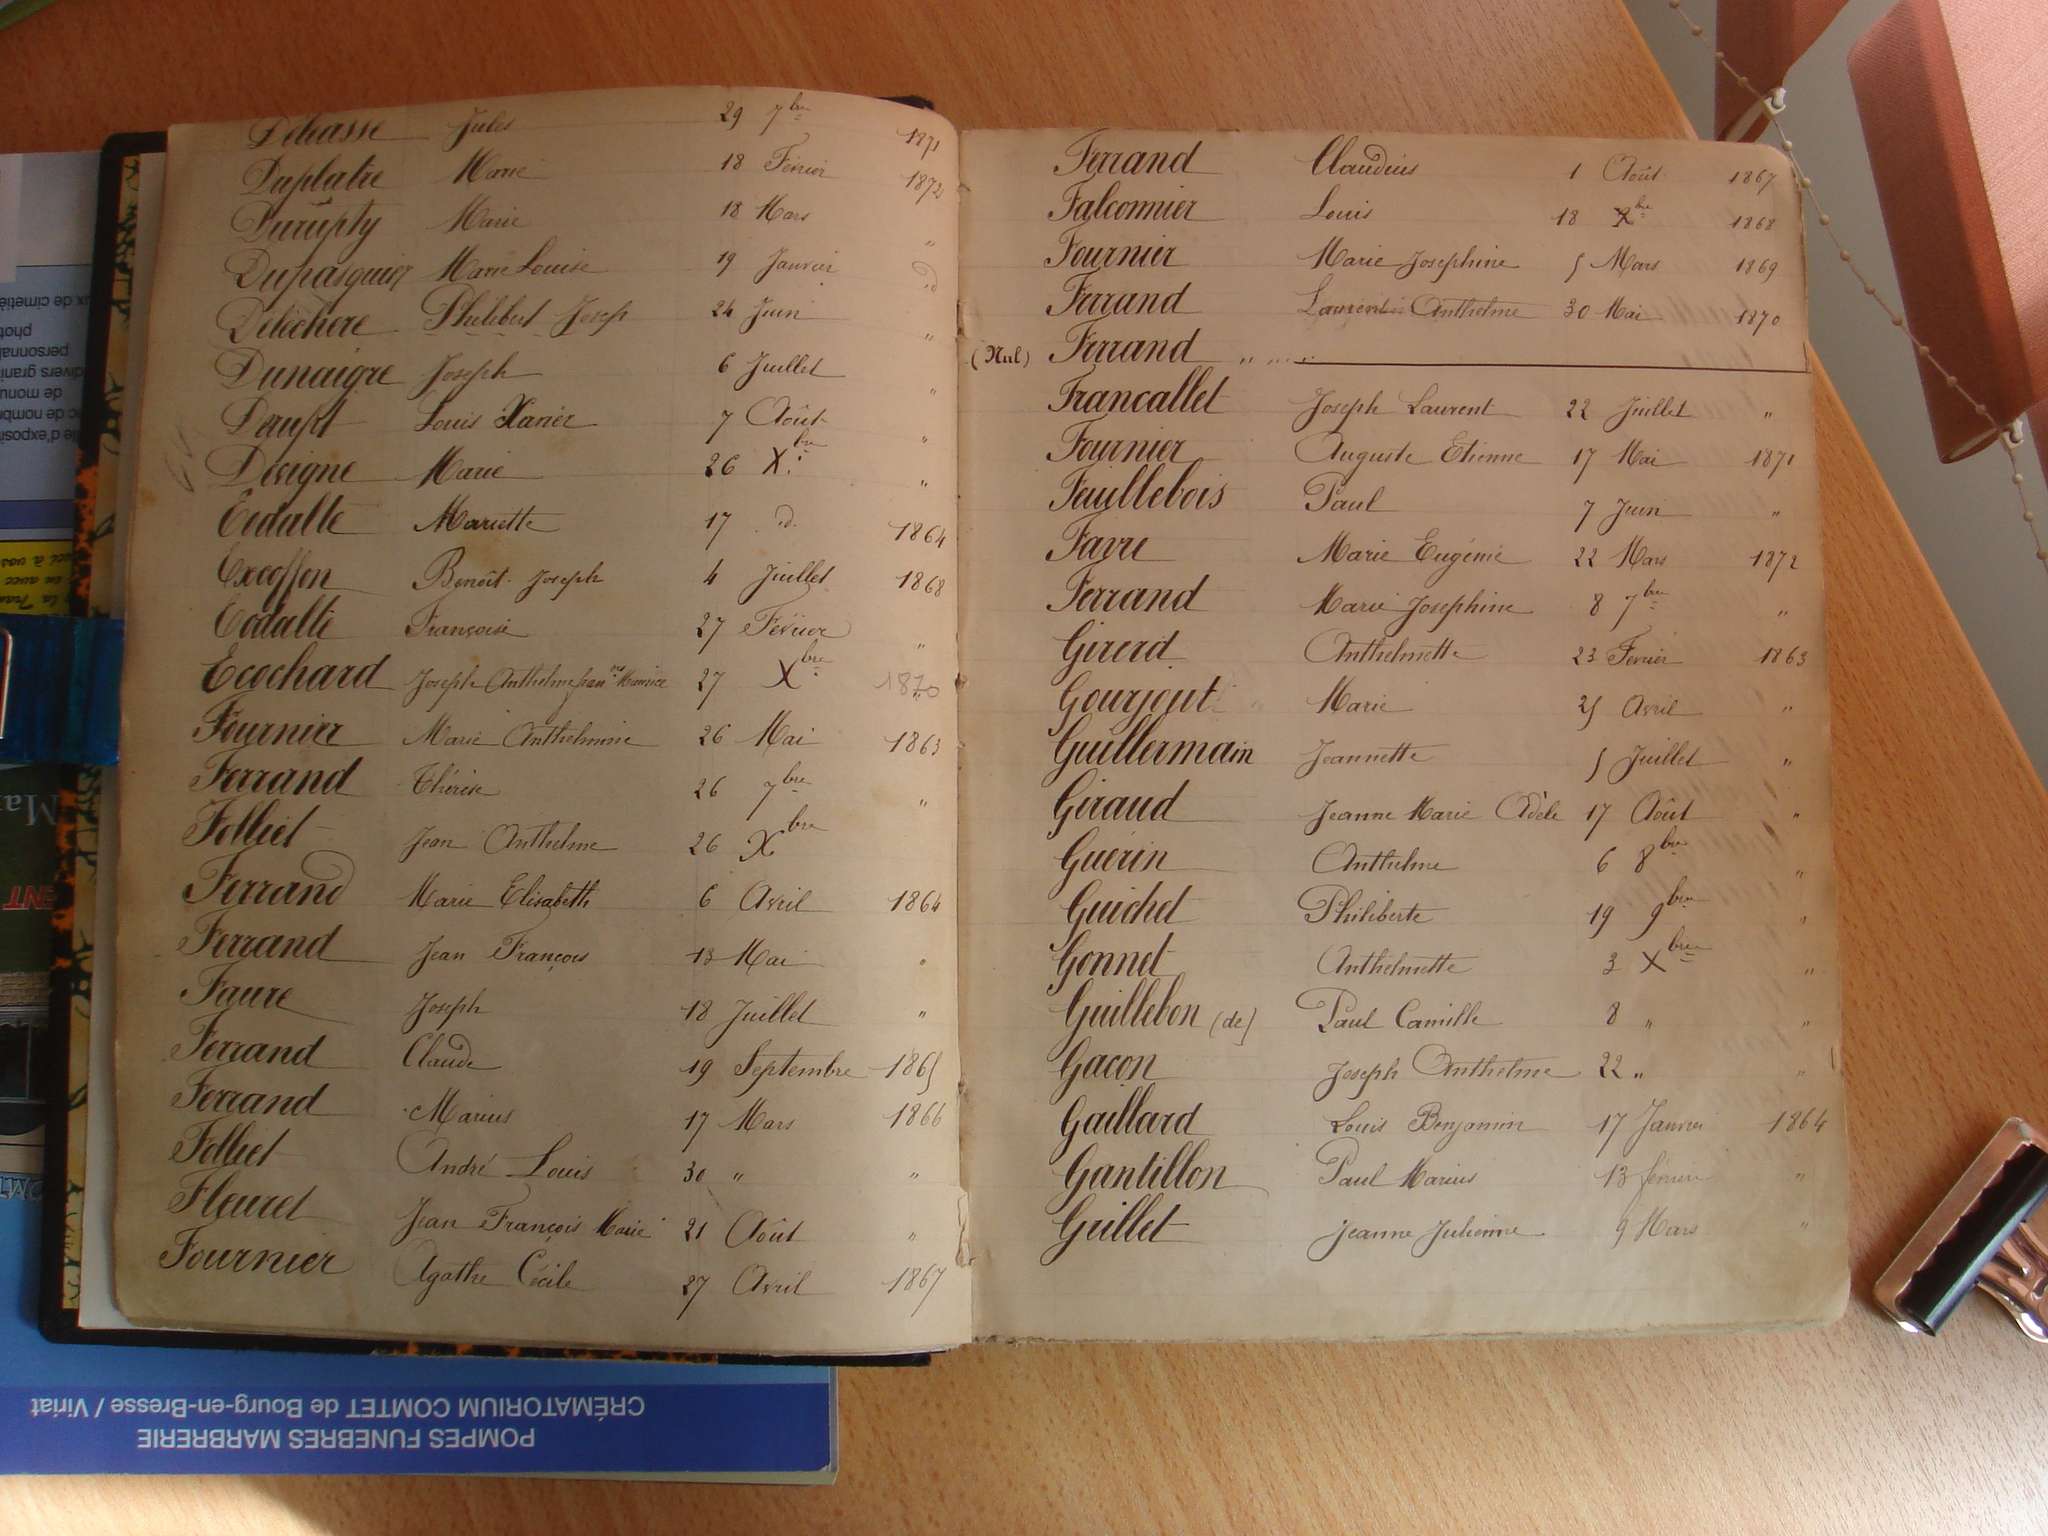 Jules 29 7bre 1871
Duplatre Marie 18 Février 1872
Durupty Marie 18 Mars "
Dupasquier Marie Louise 19 Janvier d
Deléchère Philibert Josep 24 Juin "
Dunaigre Joseph 6 Juillet "
Louis Xavier 7 Août "
Devigne Marie 26 Xbre "
Mariette 17 d. 1864
Excoffon Benoît Joseph 4 Juillet 1868
Françoise 27 Février "
Ecochard Joseph Anthelme Maurice 27 Xbre 1870
Fournier Marie Anthelmine 26 Mai 1863
Ferrand Thérèse 26 7bre "
Folliet Jean Anthelme 26 Xbre
Ferrand Marie Elisabeth 6 Avril 1864
Ferrand Jean François 13 Mai "
Faure Joseph 18 Juillet "
Ferrand Claude 19 Septembre 1865
Ferrand Marius 17 Mars 1866
Folliet André Louis 30 " "
Fleuret Jean François Marie 21 Août "
Fournier Agathe Cécile 27 Avril 1867
Ferrand Claudius 1 Août 1867
Falconnier Louis 18 Xbre 1868
Fournier Marie Josephine 5 Mars 1869
Ferrand Anthelme 30 Mai 1870
(Nul) Ferrand " " " "
Francallet Joseph Laurent 22 Juillet "
Fournier Auguste Etienne 17 Mai 1871
Feuillebois Paul 7 Juin "
Favre Marie Eugénie 22 Mars 1872
Ferrand Marie Josephine 8 7bre "
Girerd Anthelmette 23 Fevrier 1863
Gourjout Marie 25 Avril "
Guillermain Jeannette 5 Juillet "
Giraud Jeanne Marie Adèle 17 Août "
Guérin Anthelme 6 8bre "
Guichet Philiberte 19 9bre "
Gonnet Anthelmette 3 Xbre "
Guillebon (de) Paul Camille 8 " "
Gaçon Joseph Anthelme 22 " "
Gaillard Louis Benjamin 17 Janvier 1864
Gantillon Paul Marius 13 février "
Grillet Jeanne Julienne 9 Mars "
POMPES FUNEBRES MARBRERIE
CRÉMATORIUM COMTET de Bourg-en-Bresse / Viriat